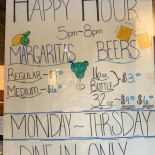 HAPPY HOUR
5pm-8pm
MARGARITAS BEERS
REGULAR-
MEDIUM-
16oz
BOTTLE
32oz
MONDAY-THRSDAY
DINE IN ONLY